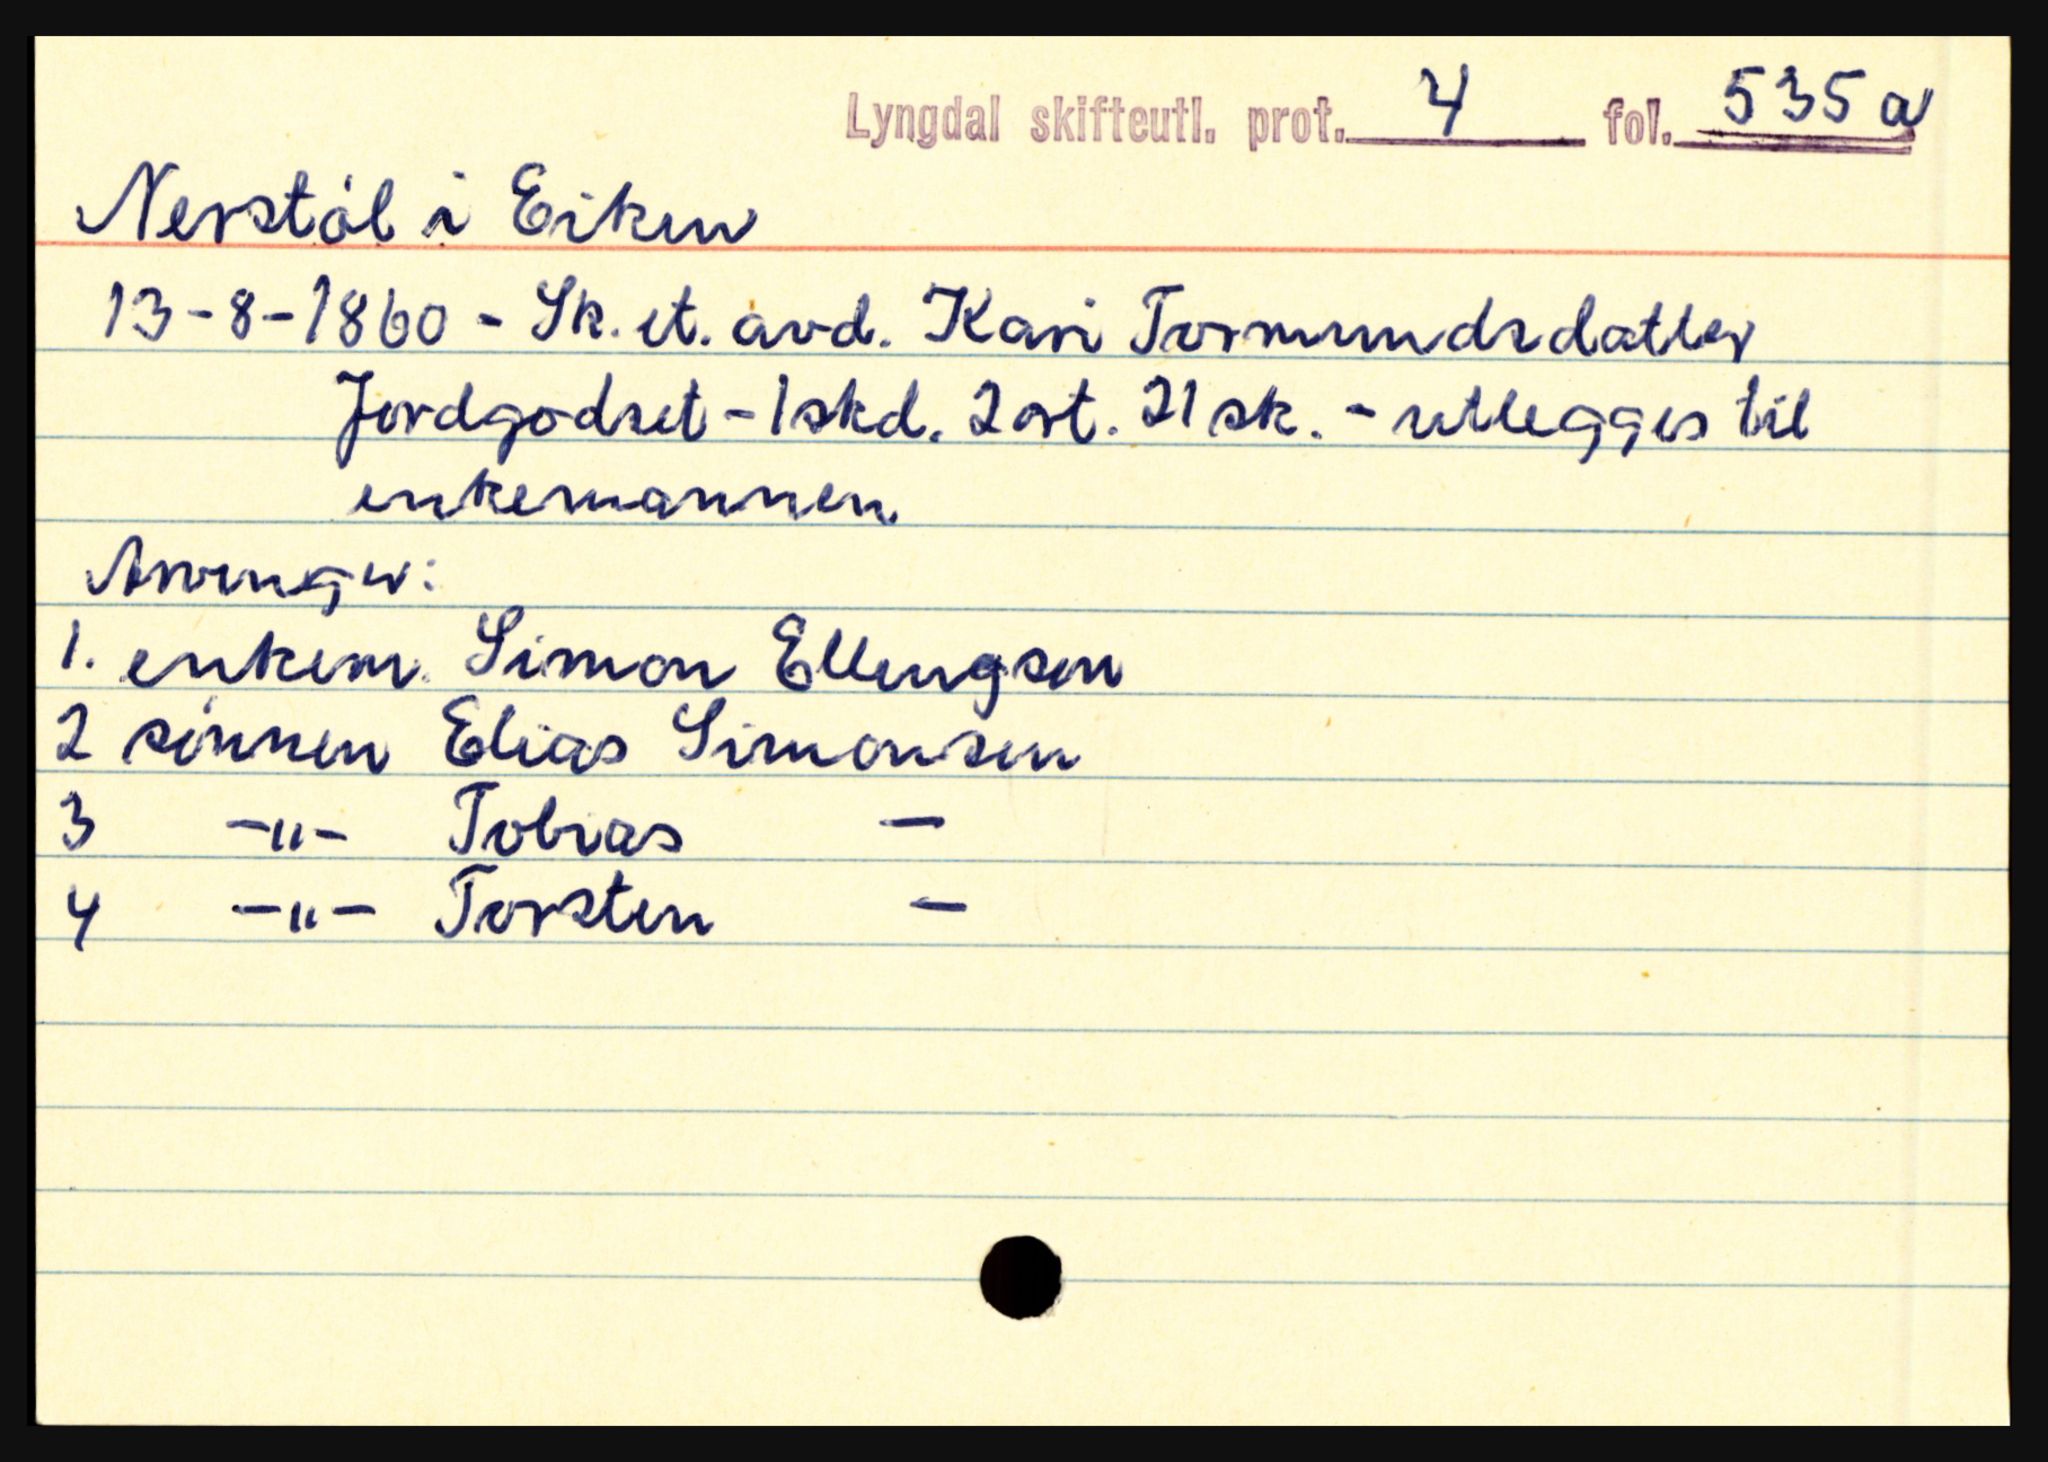 Lyngdal skifteutl. prot. 4 fol. 535a
Nerstøl i Eiken
13-8-1860 - Sk. et. avd. Kari Tormundsdatter
Jordgodset - 1 skd. 2 ort. 21 sk. - utlegges til
enkemannen.
Arvinger:
1. enkem. Simon Ellingsen
2 sønnen Elias Simonsen
3 -"- Tobias -
4 -"- Torsten -